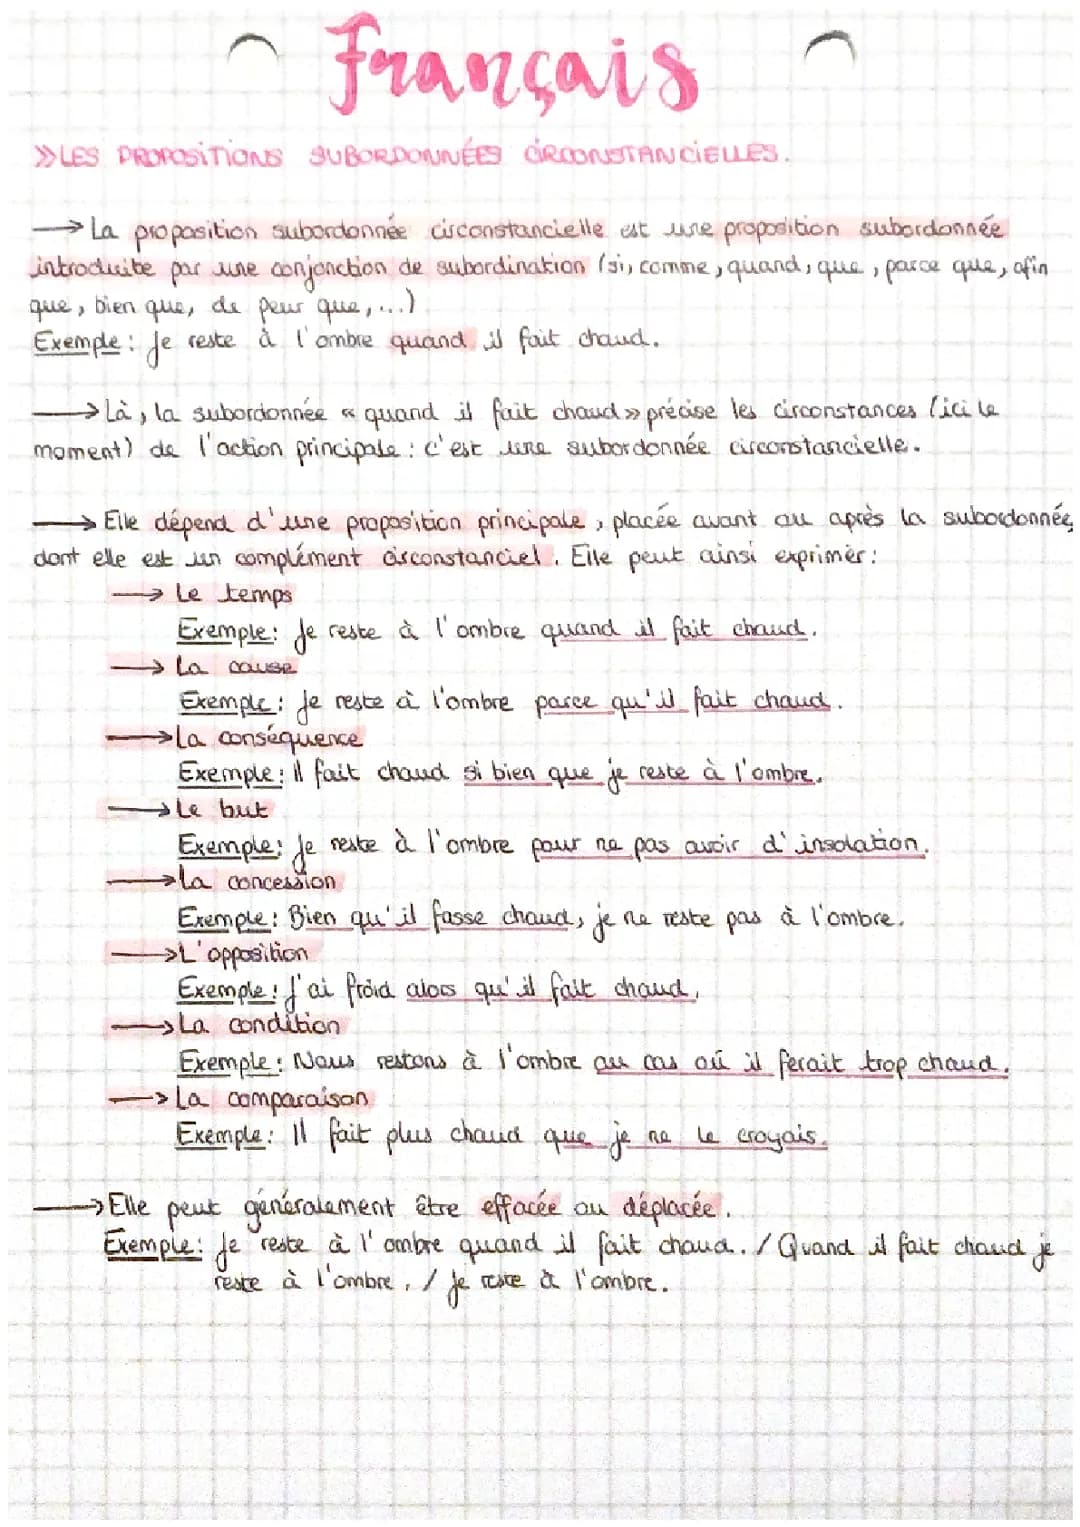 Français
>> LES PROPOSITIONS SUBORDONNÉES CIRCONSTANCIELLES.
→ La proposition subordonnée circonstancielle est une proposition subordonnée
introduite par une conjonction de subordination (si, comme, quand, que, parce que, afin
que, bien que, de peur que, ...)
Exemple : Je reste à l'ombre quand il fait chaud.
→ Là, la subordonnée « quand il fait chaud » précise les circonstances (ici le
moment) de l'action principale : c'est une subordonnée circonstancielle.
→ Elle dépend d'une proposition principale, placée avant ou après la subordonnée,
dont elle est un complément circonstanciel. Elle peut ainsi exprimer :
→ Le temps
Exemple : Je reste à l'ombre quand il fait chaud.
→ La cause
Exemple : Je reste à l'ombre parce qu'il fait chaud.
→ La conséquence
Exemple : Il fait chaud si bien que je reste à l'ombre.
→ Le but
Exemple : Je reste à l'ombre pour ne pas avoir d'insolation.
→ La concession
Exemple : Bien qu'il fasse chaud, je ne reste pas à l'ombre.
→ L'opposition
Exemple : J'ai froid alors qu'il fait chaud.
→ La condition
Exemple : Nous restons à l'ombre au cas où il ferait trop chaud.
→ La comparaison
Exemple : Il fait plus chaud que je ne le croyais.
→ Elle peut généralement être effacée ou déplacée.
Exemple : Je reste à l'ombre quand il fait chaud. / Quand il fait chaud je
reste à l'ombre. / Je reste à l'ombre.